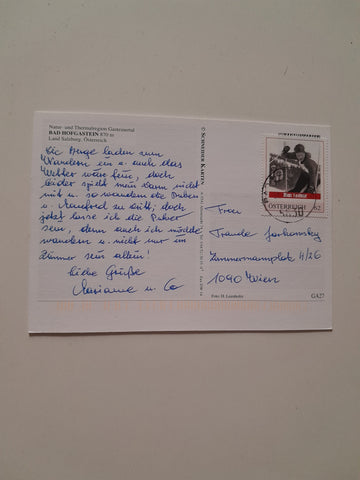 Natur- und Thermalregion Gasteinertal
BAD HOFGASTEIN 870 m
Land Salzburg, Österreich
Die Berge laden zum
Wandern ein u. auch das
Wetter wäre fein, doch
leider spielt mein Mann nicht
mit u. so wandern die Buben
u. Manfred zu dritt; doch
jetzt lasse ich die Puber
sein, denn auch ich möchte
wandern u. nicht nur im
Zimmer sein allein!
liebe Grüße
Marianne u. Co
© SCHNEIDER KARTEN
ÖSTERREICH
62
Frau
Traude
Zimmermannplatz 4/26
1090 Wien
Foto: H. Leonhofer
GA27